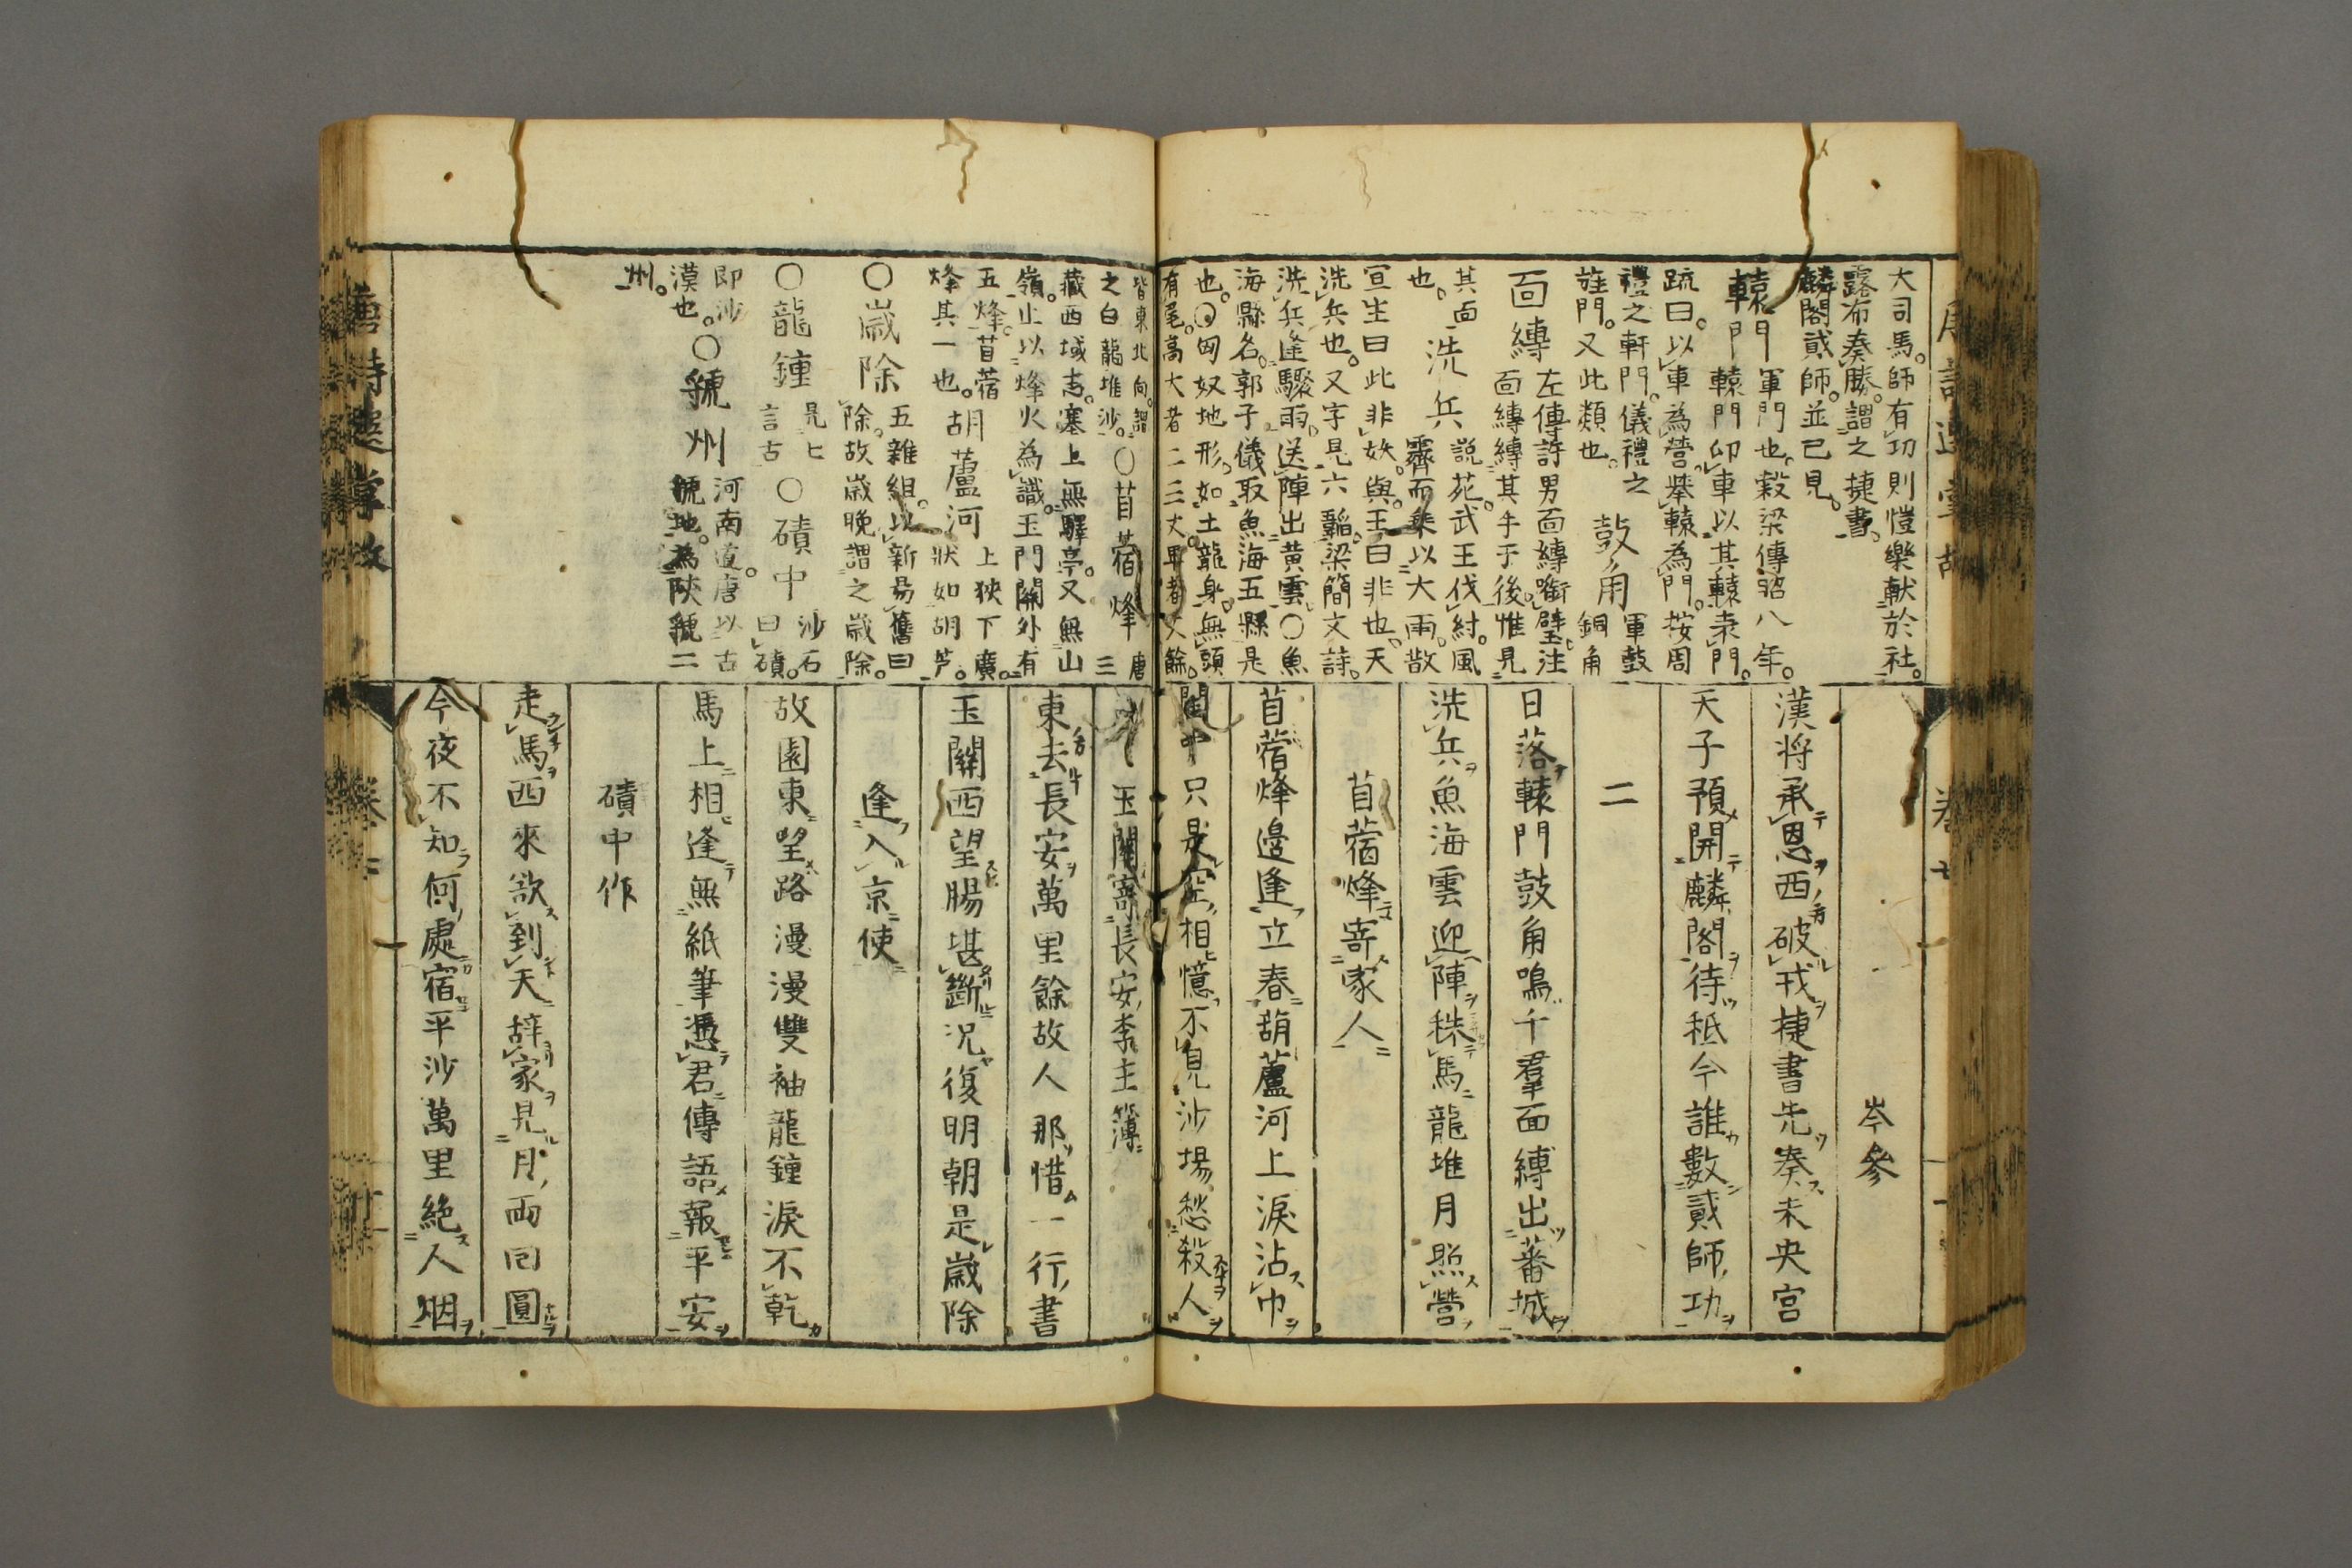 大司馬。師有功則愷樂献於社。
露布奏勝。謂之捷書。
麟閣貳師。並已見。
轅門
軍門也。穀梁傳昭八年。
轅門卬車以其轅表門。
疏曰。以車為營。擧轅為門。按周
禮之軒門。儀禮之
旌門。又此類也。
鼓角
軍鼓
銅角
面縛
左傳許男面縛啣璧。注
面縛縛其手于後。惟見
其面
也。
洗兵
説苑。武王伐紂。風
霽而乗以大雨。散
宜生曰此非妖與。王曰非也。天
洗兵也。又字見六韜。梁簡文詩。
洗兵逢驟雨。送陣出黄雲〇魚
海縣名。郭子儀取魚海五縣是
也。〇匈奴地形。如土龍身。無頭
有尾。高大者二三丈。卑者丈餘。
岑參
漢将承恩西破戎捷書先奏未央宮
天子預開麟閣待秪今誰數貳師功
二
日落轅門鼓角鳴千羣面縛出蕃城
洗兵魚海雲迎陣秣馬龍堆月照營
苜蓿烽寄家人
苜蓿烽邊逢立春葫蘆河上淚沾巾
閨中只是空相憶不見沙場愁殺人
皆東北向。謂
之白龍堆沙。
〇苜蓿烽
唐
三
藏西域志。塞上無驛亭。又無山
嶺。止以烽火為識。玉門關外有
五烽。苜蓿
烽其一也。
胡蘆河
上狹下廣。
狀如胡芦。
〇歳除
五雜組。以新易舊曰
除。故歳晩謂之歳除。
〇龍鍾
見七
言古
〇磧中
沙石
曰磧。
即沙
漠也。
〇虢州
河南道。唐以古
虢地。為陝虢二
州。
玉關寄長安李主簿
東去長安萬里餘故人那惜一行書
玉關西望腸堪斷況復明朝是歳除
逢入京使
故園東望路漫漫雙袖龍鐘淚不乾
馬上相逢無紙筆憑君傳語報平安
磧中作
走馬西來欲到天辞家見月兩回圓
今夜不知何處宿平沙萬里絶人烟
唐詩選掌故